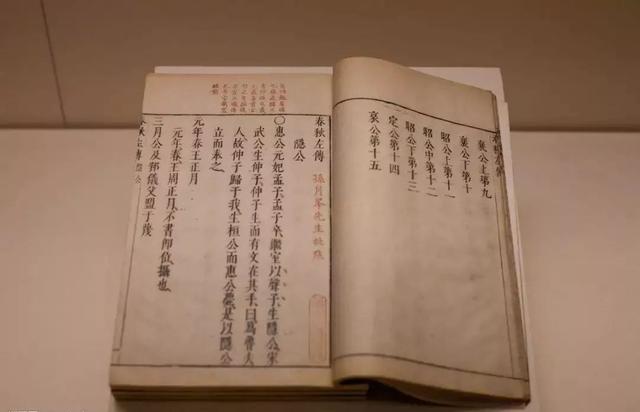 襄公上第九
襄公下第十
昭公上第十一
昭公中第十二
昭公下第十三
定公第十四
哀公第十五
春秋左傳 孫月峯先生批點
隱公
〇惠公元妃孟子孟子卒繼室以聲子生隱公宋
武公生仲子仲子生而有文在其手曰爲魯夫
人故仲子歸于我生桓公而惠公薨是以隱公
立而奉之
元年春王正月
元年春王周正月不書卽位攝也
三月公及邾儀父盟于蔑
春秋左傳 隱公